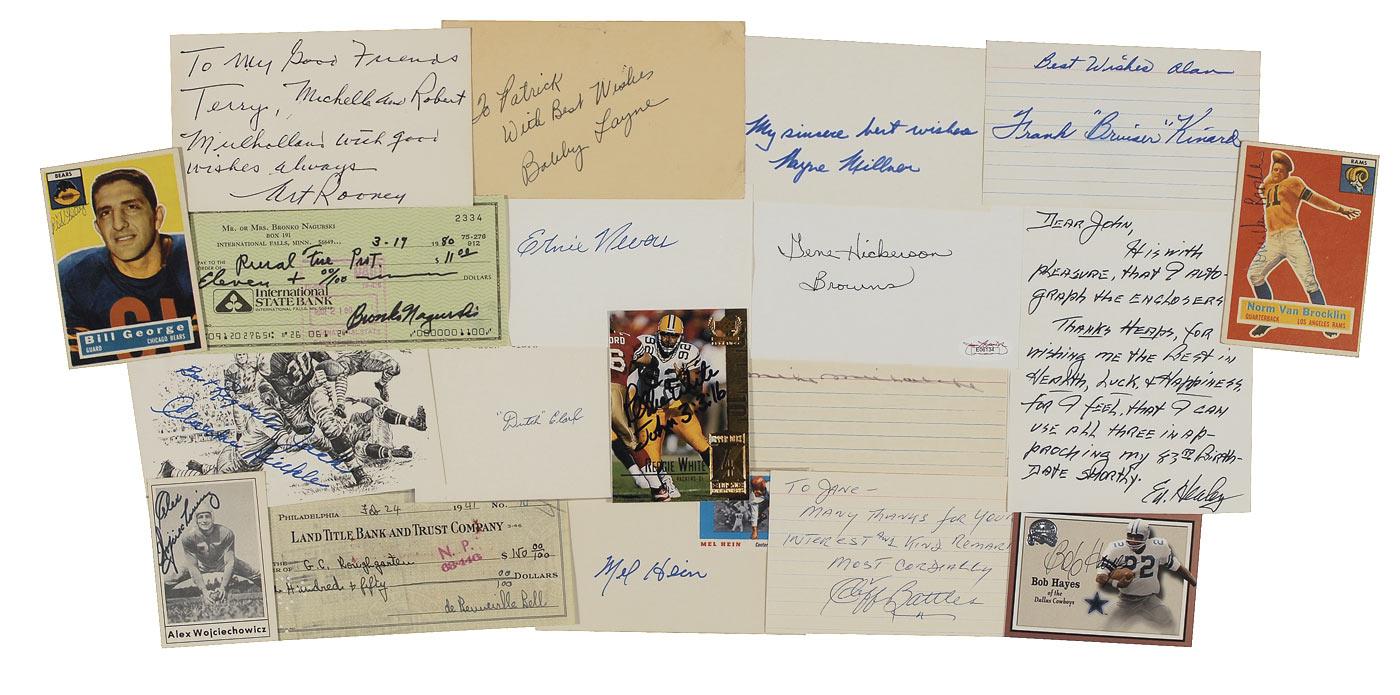 To My Good Friends
Terry, Michelle and Robert
Mulholland with good
wishes always
Art Rooney
To Patrick
With Best Wishes
Bobby Layne
My sincere best wishes
Wayne Millner
Best Wishes Alan
Frank "Bruiser" Kinard
BEARS
Bill George
GUARD
CHICAGO BEARS
2334
MR. OR MRS. BRONKO NAGURSKI
BOX 191
INTERNATIONAL FALLS, MINN. 56649
3-19 1980
75-276
912
PAY TO THE
ORDER OF
Rural Fire Prot
$ 11.00
Eleven + 00/100
DOLLARS
International
STATE BANK
Bronko Nagurski
Ernie Nevers
Gene Hickerson
Browns
E06134
DEAR JOHN,
It IS WITH
PLEASURE, THAT I AUTO-
GRAPH THE ENCLOSERS
THANKS HEAPS, FOR
WISHING ME THE BEST IN
HEALTH, LUCK, & HAPPINESS,
FOR I FEEL, THAT I CAN
USE ALL THREE IN AP-
PROCHING MY 83RD BIRTH-
DATE SHORTLY.
Ed Healey
RAMS
Norm Van Brocklin
QUARTERBACK
LOS ANGELES RAMS
Best Regards
Clarke Hinkle
"Dutch" Clark
Reggie White
REGGIE WHITE
PACKERS
Alex
Wojciechowicz
Alex Wojciechowicz
PHILADELPHIA Feb 24 1941 No.
LAND TITLE BANK AND TRUST COMPANY 3-46
N.P.
G. C. Roughgarten
$ 150 00/100
Hundred & fifty
00/100 DOLLARS
de Benneville Bell
MEL HEIN
Center
Mel Hein
TO JANE-
MANY THANKS FOR YOUR
INTEREST AND KIND REMAR
MOST CORDIALLY
Cliff Battles
Bob Hayes
Bob Hayes
of the
Dallas Cowboys